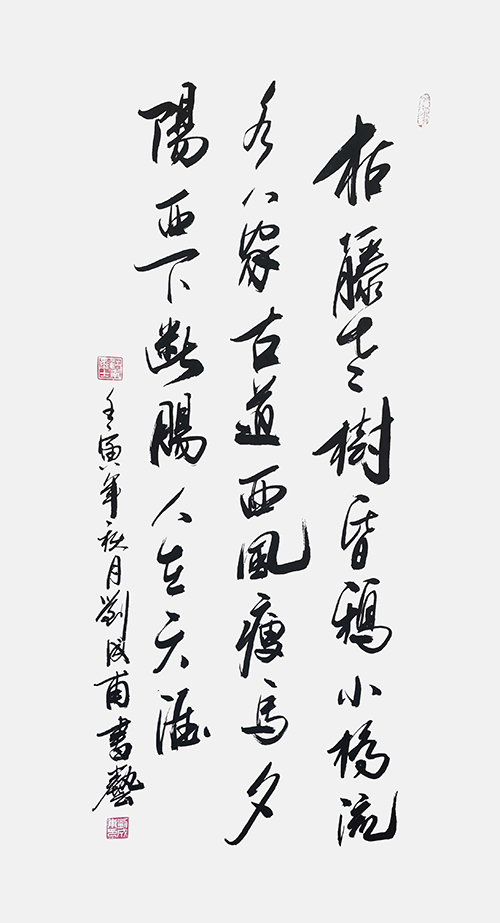 枯藤老樹昏鴉小橋流
水人家古道西風瘦馬夕
陽西下断腸人在天涯
壬寅年秋月劉成甫書藝